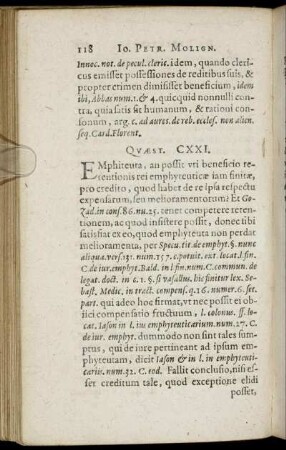 118 IO. PETR. MOLIGN.
Innoc. not. de pecul. cleric. idem, quando cleri-
cus emisset possessiones de reditibus suis, &
propter crimen dimisisset beneficium, idem
ibi, Abbas num. 1. & 4. quicquid nonnulli con-
tra, quia satis sit humanum, & rationi con-
sonum, arg. c. ad auros. de reb. eccles. non alien.
seq. Card. Florent.
QVÆST. CXXI.
EMphiteuta, an possit vti beneficio re-
tentionis rei emphyteuticæ iam finitæ,
pro credito, quod habet de re ipsa respectu
expensarum, seu melioramentorum? Et Go-
Zad. in cons. 86. nu. 25. tenet competere reten-
tionem, ac quod insistere possit, donec ibi
satisfiat ex eo, quod emphyteuta non perdat
melioramenta, per Specu. tit. de emphyt. §. nunc
aliqua. vers. 131. num. 157. c. potuit. ext. locat. l. fin.
C. de iur. emphyt. Bald. in l. fin. num. C. commun. de
legat. doct. in c. 1. §. si vasallus. hic finitur lex. Se-
bast. Medic. in tract. compens. q. 26. numer. 6. set.
part. qui adeo hoc firmat, vt nec possit ei ob-
iici compensatio fructuum, l. colonus. ff. locat.
Iason in l. ius emphyteuticarium. num. 27. C.
de iur. emphyt. dummodo non sint tales sum-
ptus, qui de iure pertineant ad ipsum em-
phyteutam, dicit Iason & in l. in emphyteuti-
cariis. num. 32. C. eod. Fallit conclusio, nisi es-
set creditum tale, quod exceptione elidi
posset,